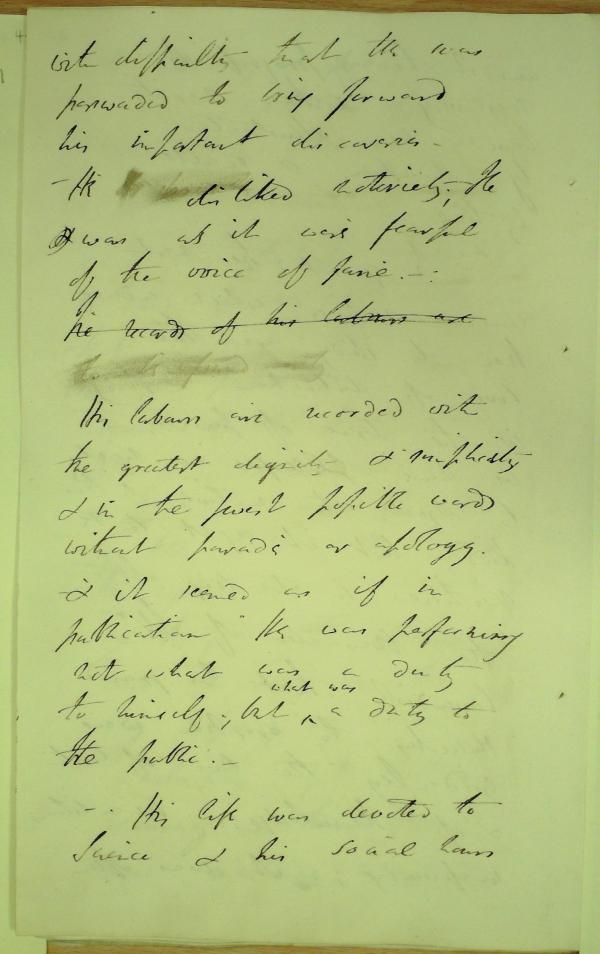 with difficulty that He was
persuaded to bring forward
his important discoveries -
- He disliked notoriety; He
& was as it were fearful
of the voice of fame. - :
The records of his labours are
His labours are recorded with
the greatest dignity & simplicity
& in the fewest possible words
without parade or apology.
- & it seemed as if in
publication He was performing
not what was a duty
to himself -, but what was a duty to
the public. -
- . His life was devoted to
Science & his social hours